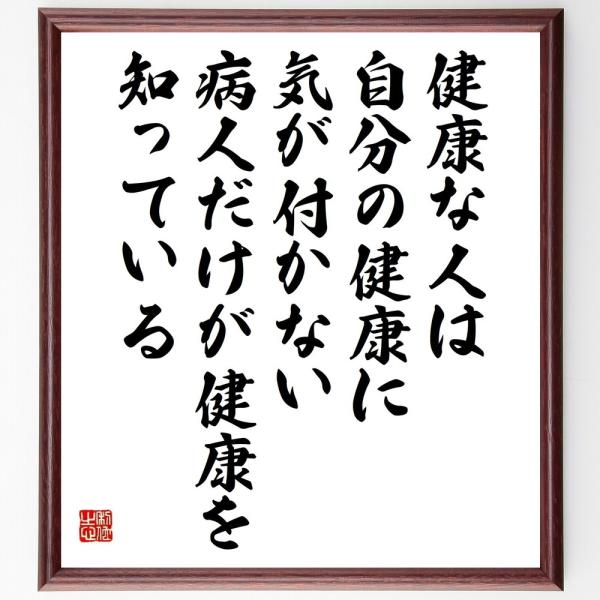 健康な人は
自分の健康に
気が付かない
病人だけが健康を
知っている